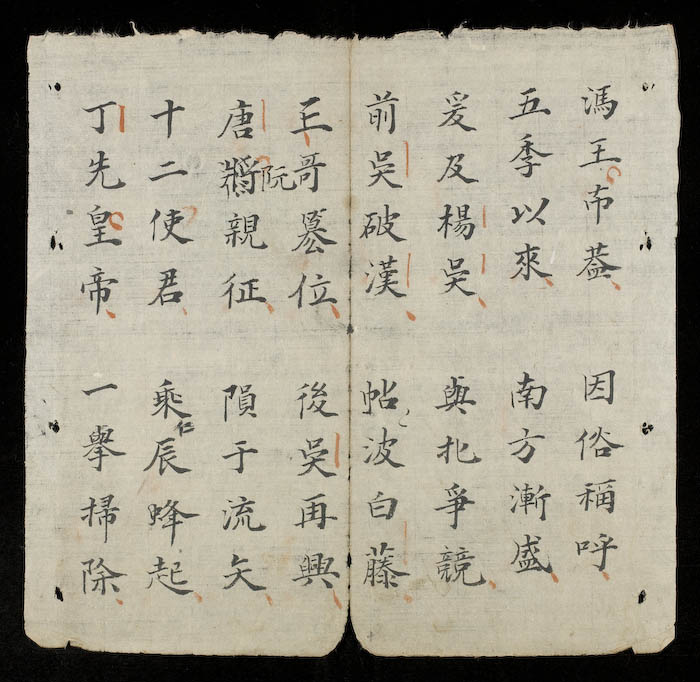 馮王布蓋 因俗稱呼
五季以來 南方漸盛
爰及楊吳 與北爭競
前吳破漢 帖波白藤
三哥篡位 後吳再興
唐阮將親征 隕于流矢
十二使君 乘仁辰蜂起
丁先皇帝 一舉掃除